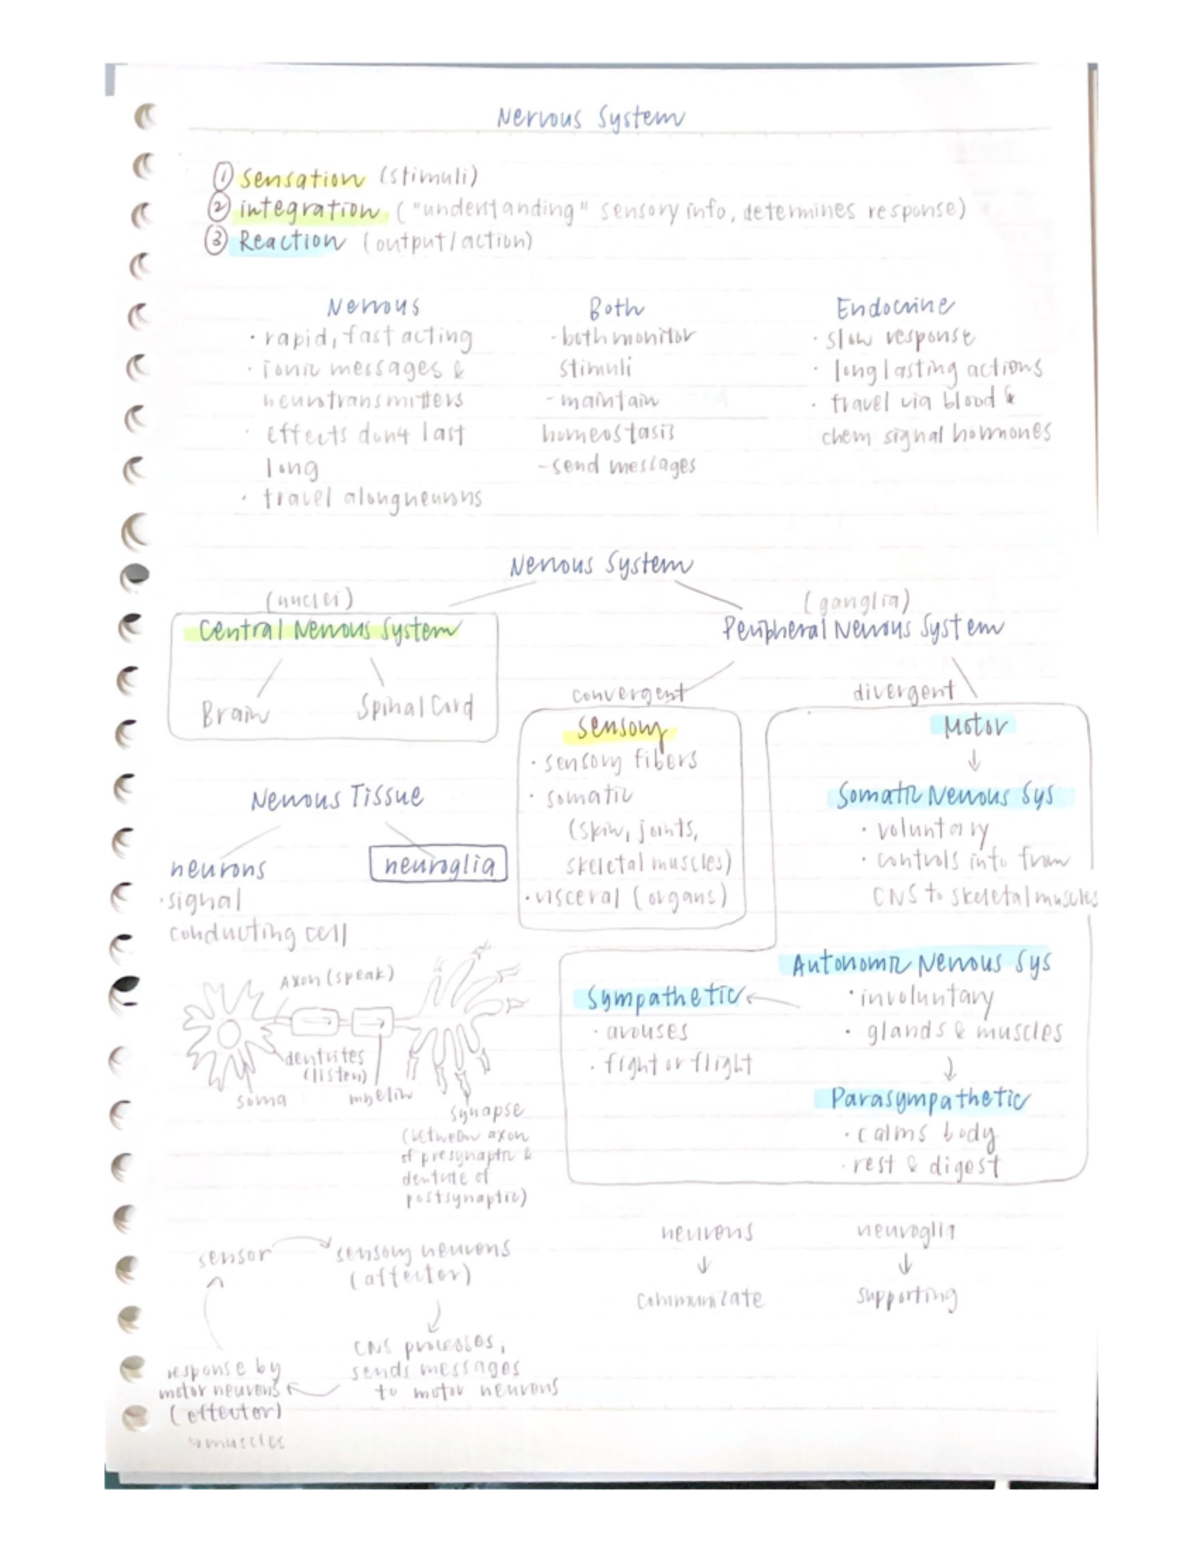 Nervous System
① Sensation (stimuli)
② integration ("understanding" sensory info, determines response)
③ Reaction (output/action)
Nervous
• rapid, fast acting
• ionic messages &
neurotransmitters
• effects don't last
long
• travel along neurons
Both
- both monitor
stimuli
- maintain
homeostasis
- send messages
Endocrine
• slow response
• long lasting actions
• travel via blood &
chem signal hormones
Nervous System
(nuclei)
Central Nervous System
Brain
Spinal Cord
(ganglia)
Peripheral Nervous System
convergent
Sensory
• sensory fibers
• somatic
(skin, joints,
skeletal muscles)
• visceral (organs)
divergent
Motor
↓
Somatic Nervous Sys
• voluntary
• controls info from
CNS to skeletal muscles
Autonomic Nervous Sys
• involuntary
• glands & muscles
↓
Sympathetic
• arouses
• fight or flight
Parasympathetic
• calms body
• rest & digest
Nervous Tissue
neurons
• signal
conducting cell
neuroglia
Axon (speak)
dentrites
(listen)
soma
myelin
synapse
(between axon
of presynaptic &
dentrite of
postsynaptic)
sensor
sensory neurons
(affector)
CNS processes,
sends messages
to motor neurons
response by
motor neurons
(effector)
↳ muscles
neurons
↓
communicate
neuroglia
↓
supporting